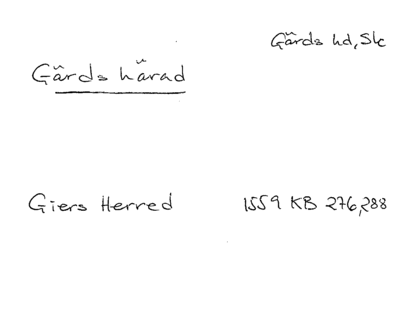 Gärds hd, Sk
Gärds härad
Giers Herred 1559 KB 276,288